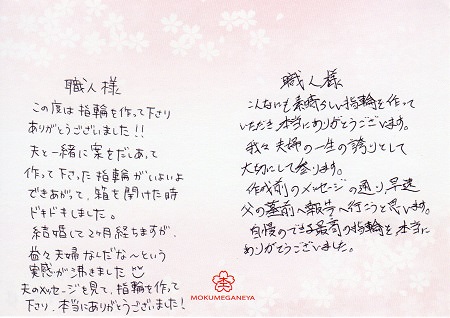 職人様
この度は指輪を作って下さり
ありがとうございました!!
夫と一緒に案をだしあって
作って下さった指輪がいよいよ
できあがって、箱を開けた時
ドキドキしました。
結婚して2ヶ月経ちますが、
益々夫婦なんだな〜という
実感が沸きました☺
夫のメッセージを見て、指輪を作って
下さり、本当にありがとうございました!
職人様
こんなにも素晴らしい指輪を作って
いただき本当にありがとうございます。
我々夫婦の一生の誇りとして
大切にして参ります。
作成前のメッセージの通り、早速
父の墓前へ報告へ行こうと思います。
自慢のできる最高の指輪を本当に
ありがとうございました。
MOKUMEGANEYA